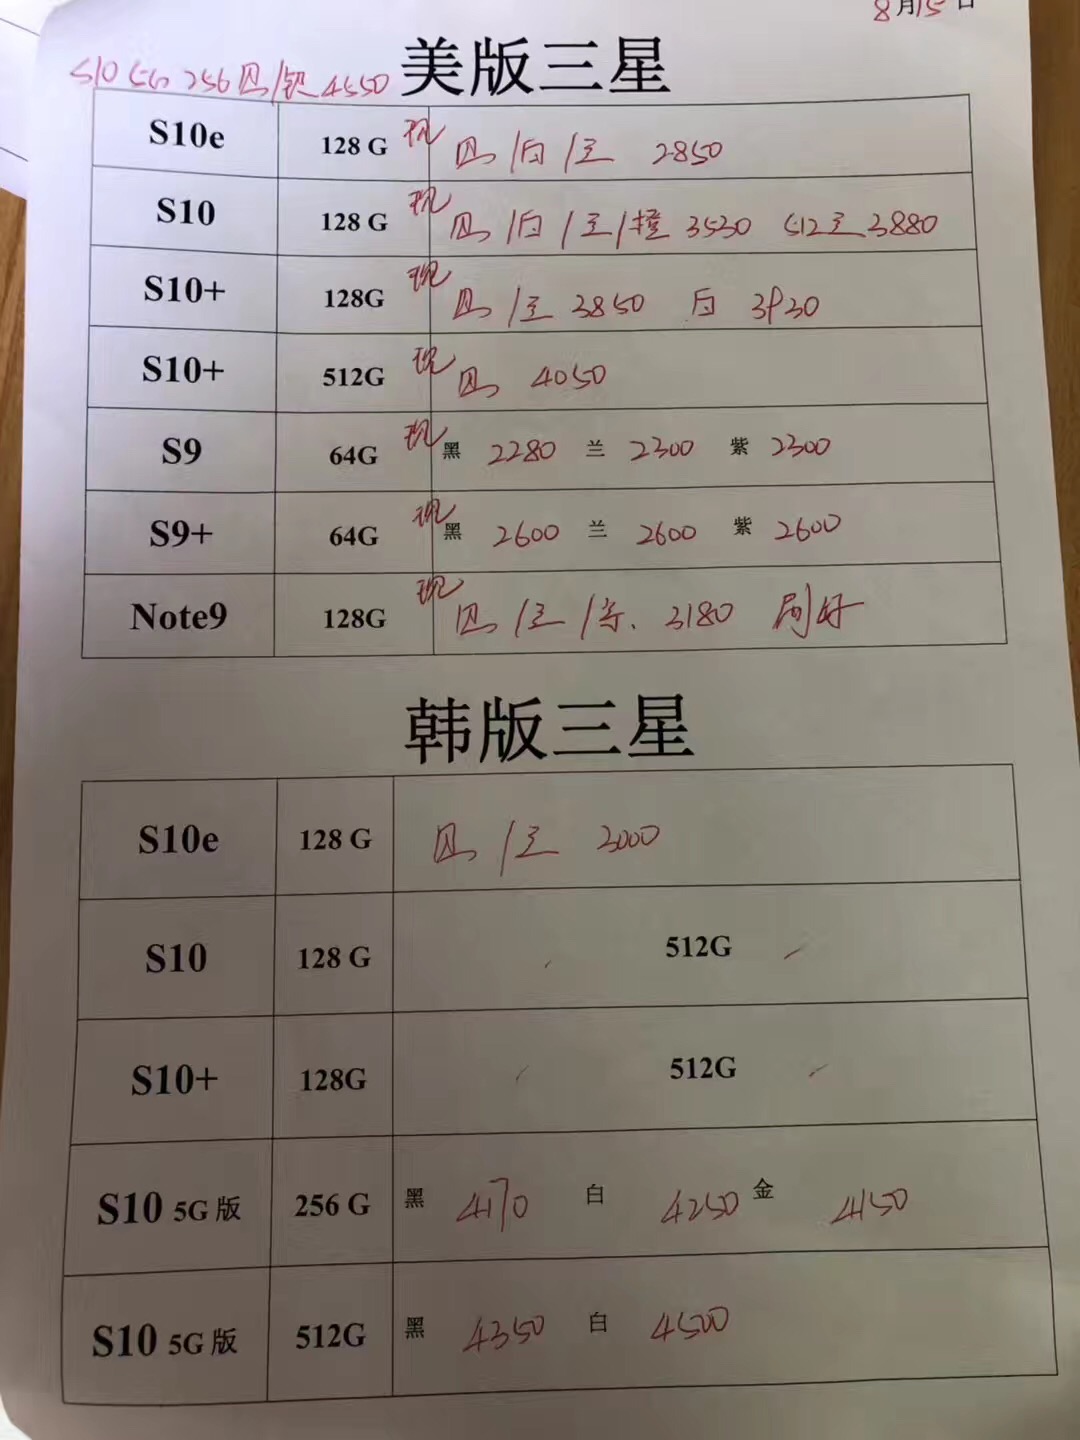 8月15日
S10 5G 256 黑/银 4550
美版三星
S10e 128 G 现 黑/白/蓝 2850
S10 128 G 现 黑/白/蓝/橙 3530 512蓝3880
S10+ 128G 现 黑/蓝 3850 白 3930
S10+ 512G 现 黑 4050
S9 64G 现 黑 2280 兰 2300 紫 2300
S9+ 64G 现 黑 2600 兰 2600 紫 2600
Note9 128G 现 黑/蓝/ 3180
韩版三星
S10e 128 G 黑/蓝 3000
S10 128 G 512G
S10+ 128G 512G
S10 5G版 256 G 黑 4170 白 4250 金 4150
S10 5G版 512G 黑 4350 白 4500